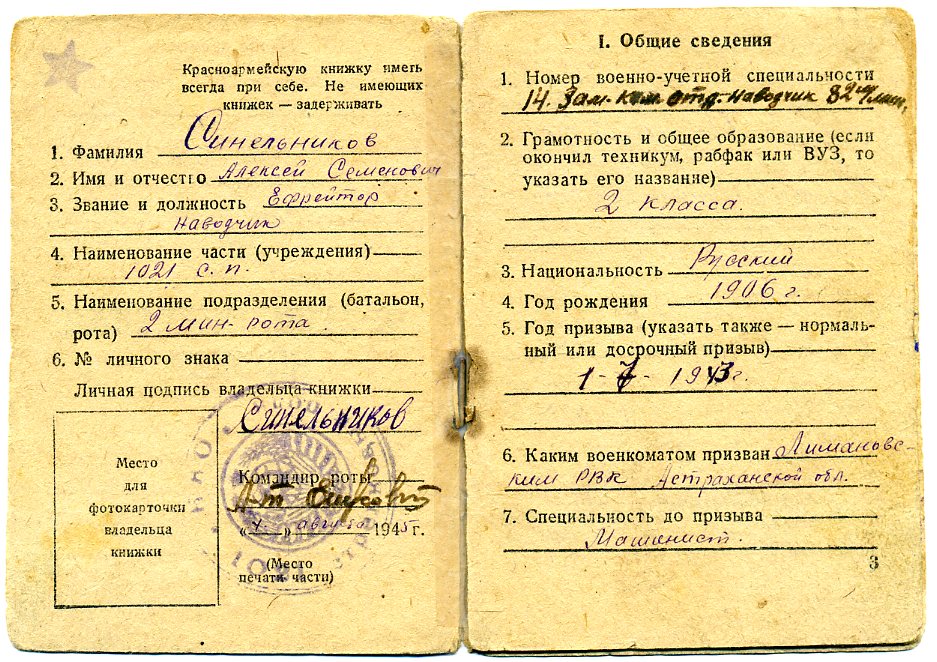 Красноармейскую книжку иметь
всегда при себе. Не имеющих
книжек — задерживать
1. Фамилия Синельников
2. Имя и отчество Алексей Семенович
3. Звание и должность Ефрейтор
наводчик
4. Наименование части (учреждения)
1021 с. п.
5. Наименование подразделения (батальон,
рота) 2 мин-рота.
6. № личного знака
Личная подпись владельца книжки
Синельников
Место
для
фотокарточки
владельца
книжки
Командир роты
« » августа 1945 г.
(Место
печати части)
I. Общие сведения
1. Номер военно-учетной специальности
14. Зам. ком отд. наводчик 82 м/м
2. Грамотность и общее образование (если
окончил техникум, рабфак или ВУЗ, то
указать его название)
2 класса.
3. Национальность Русский
4. Год рождения 1906 г.
5. Год призыва (указать также — нормаль-
ный или досрочный призыв)
1-7-1943 г.
6. Каким военкоматом призван Лимановс-
ким РВК Астраханской обл.
7. Специальность до призыва
Машинист.
3